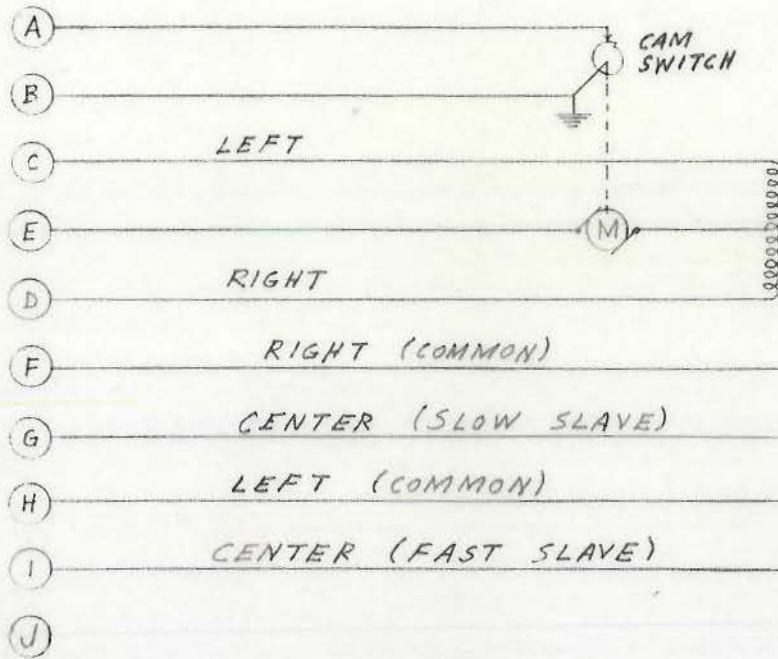 A
CAM
SWITCH
B
LEFT
C
E
M
RIGHT
D
RIGHT (COMMON)
F
CENTER (SLOW SLAVE)
G
LEFT (COMMON)
H
CENTER (FAST SLAVE)
I
J